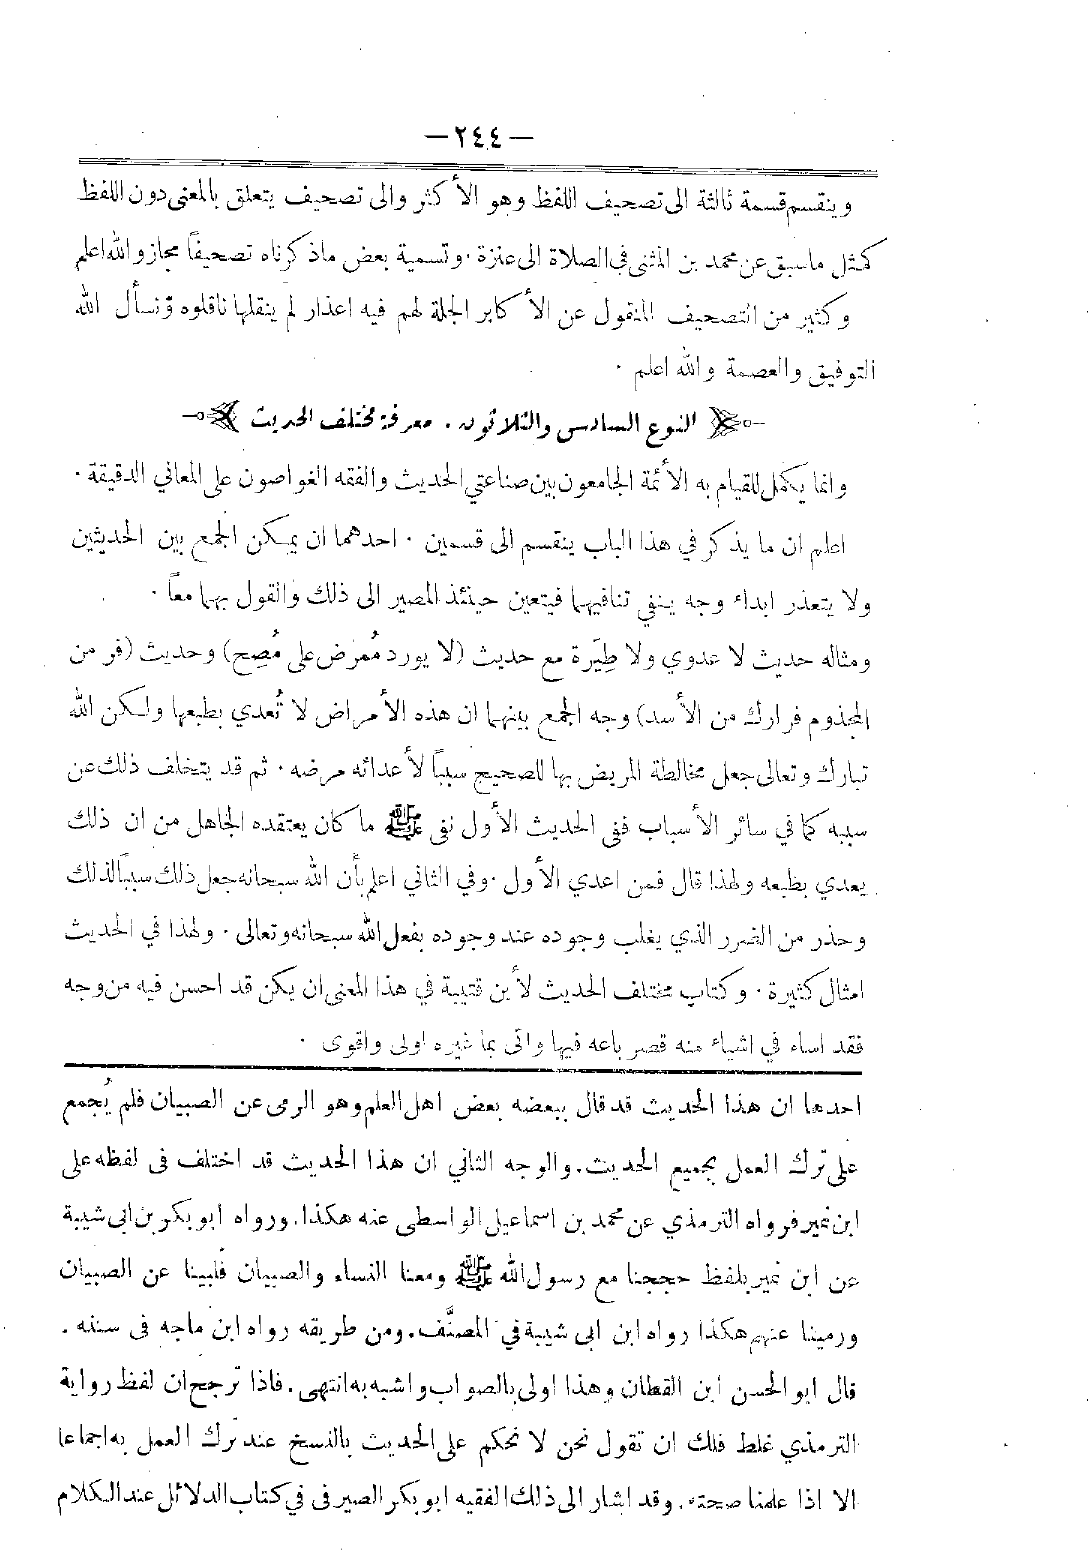 — ٢٤٤ —
وينقسم قسمة ثالثة الى تصحيف اللفظ وهو الأكثر والى تصحيف يتعلق بالمعنى دون اللفظ
كمثل ما سبق عن محمد بن المثنى في الصلاة الى عنزة . وتسمية بعض ماذكرناه تصحيفاً مجاز والله اعلم
وكثير من التصحيف المنقول عن الأكابر الجلة لهم فيه اعذار لم ينقلها ناقلوه ونسأل الله
التوفيق والعصمة والله اعلم .
النوع السادس والثلاثون . معرفة مختلف الحديث
وانما يكمل للقيام به الأئمة الجامعون بين صناعتي الحديث والفقه الغواصون على المعاني الدقيقة .
اعلم ان ما يذكر في هذا الباب ينقسم الى قسمين . احدهما ان يمكن الجمع بين الحديثين
ولا يتعذر ابداء وجه ينفي تنافيهما فيتعين حينئذ المصير الى ذلك والقول بهما معاً .
ومثاله حديث لا عدوي ولا طِيَرة مع حديث (لا يورد مُمرض على مُصِح) وحديث (فر من
المجذوم فرارك من الأسد) وجه الجمع بينهما ان هذه الأمراض لا تُعدي بطبعها ولكن الله
تبارك وتعالى جعل مخالطة المريض بها للصحيح سبباً لأعدائه مرضه . ثم قد يتخلف ذلك عن
سببه كما في سائر الأسباب ففي الحديث الأول نفى ﷺ ما كان يعتقده الجاهل من ان ذلك
يعدي بطبعه ولهذا قال فمن اعدي الأول . وفي الثاني اعلم بأن الله سبحانه جعل ذلك سبباً لذلك
وحذر من الضرر الذي يغلب وجوده عند وجوده بفعل الله سبحانه وتعالى . ولهذا في الحديث
امثال كثيرة . وكتاب مختلف الحديث لأبن قتيبة في هذا المعنى ان يكن قد احسن فيه من وجه
فقد اساء في اشياء منه قصر باعه فيها واتى بما غيره اولى واقوى .
احدها ان هذا الحديث قد قال ببعضه بعض اهل العلم وهو الرمى عن الصبيان فلم يُجمع
على ترك العمل بجميع الحديث . والوجه الثاني ان هذا الحديث قد اختلف فى لفظه على
ابن نمير فرواه الترمذي عن محمد بن اسماعيل الواسطى عنه هكذا . ورواه ابو بكر بن ابى شيبة
عن ابن نمير بلفظ حججنا مع رسول الله ﷺ ومعنا النساء والصبيان فلبينا عن الصبيان
ورمينا عنهم هكذا رواه ابن ابى شيبة في المصنَّف . ومن طريقه رواه ابن ماجه فى سننه .
قال ابو الحسن ابن القطان وهذا اولى بالصواب واشبه به انتهى . فاذا ترجح ان لفظ رواية
الترمذي غلط فلك ان تقول نحن لا نحكم على الحديث بالنسخ عند ترك العمل به اجماعا
الا اذا علمنا صحته . وقد اشار الى ذلك الفقيه ابو بكر الصيرفى في كتاب الدلائل عند الكلام